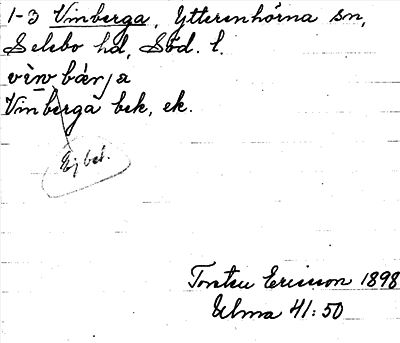 1-3 Vinberga, Ytterenhörna sn,
Selebo hd, Söd. l.
vìn bärja
Vinberga bek, ek.
Ej bet.
Torsten Ericsson 1898
Ulma 41:50